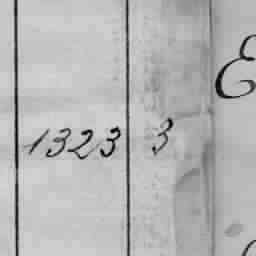 1323 3 E